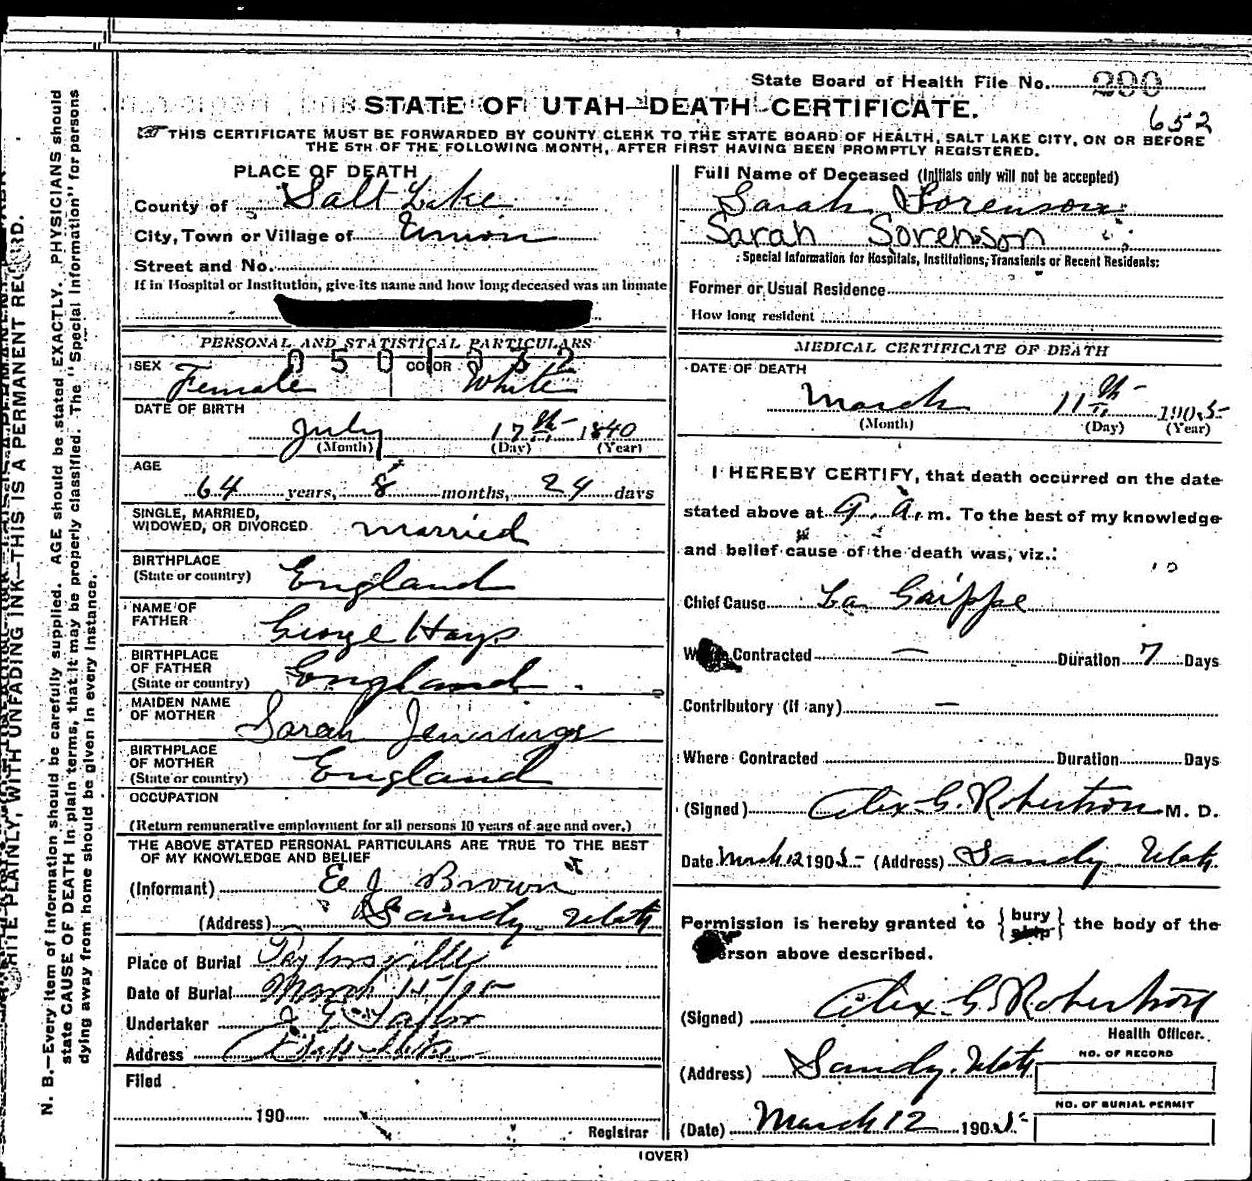 State Board of Health File No. 290
652
STATE OF UTAH—DEATH CERTIFICATE.
THIS CERTIFICATE MUST BE FORWARDED BY COUNTY CLERK TO THE STATE BOARD OF HEALTH, SALT LAKE CITY, ON OR BEFORE
THE 5TH OF THE FOLLOWING MONTH, AFTER FIRST HAVING BEEN PROMPTLY REGISTERED.
PLACE OF DEATH
County of Salt Lake
City, Town or Village of Union
Street and No.
If in Hospital or Institution, give its name and how long deceased was an inmate
PERSONAL AND STATISTICAL PARTICULARS
0501032
SEX Female COLOR White
DATE OF BIRTH
July 17th 1840
(Month) (Day) (Year)
AGE
64 years, 8 months, 24 days
SINGLE, MARRIED,
WIDOWED, OR DIVORCED married
BIRTHPLACE
(State or country) England
NAME OF
FATHER George Hays
BIRTHPLACE
OF FATHER
(State or country) England
MAIDEN NAME
OF MOTHER Sarah Jennings
BIRTHPLACE
OF MOTHER
(State or country) England
OCCUPATION
(Return remunerative employment for all persons 10 years of age and over.)
THE ABOVE STATED PERSONAL PARTICULARS ARE TRUE TO THE BEST
OF MY KNOWLEDGE AND BELIEF
(Informant) E J Brown
(Address) Sandy Utah
Place of Burial Taylorsville
Date of Burial March 15/05
Undertaker Taylor
Address
Filed
190
Registrar
Full Name of Deceased (Initials only will not be accepted)
Sarah Sorenson
Sarah Sorenson
Special Information for Hospitals, Institutions, Transients or Recent Residents:
Former or Usual Residence
How long resident
MEDICAL CERTIFICATE OF DEATH
DATE OF DEATH
March 11th 1905
(Month) (Day) (Year)
I HEREBY CERTIFY, that death occurred on the date
stated above at 9 A. m. To the best of my knowledge
and belief cause of the death was, viz.:
Chief Cause La Grippe
Contracted — Duration 7 Days
Contributory (if any) —
Where Contracted Duration Days
(Signed) Alex G. Robertson M. D.
Date March 12 1905 (Address) Sandy Utah
Permission is hereby granted to { bury ship } the body of the
person above described.
(Signed) Alex G. Robertson
Health Officer.
(Address) Sandy. Utah
NO. OF RECORD
NO. OF BURIAL PERMIT
(Date) March 12 1905
(OVER)
WRITE PLAINLY, WITH UNFADING INK—THIS IS A PERMANENT RECORD.
N. B.—Every item of information should be carefully supplied. AGE should be stated EXACTLY. PHYSICIANS should
state CAUSE OF DEATH in plain terms, that it may be properly classified. The "Special Information" for persons
dying away from home should be given in every instance.